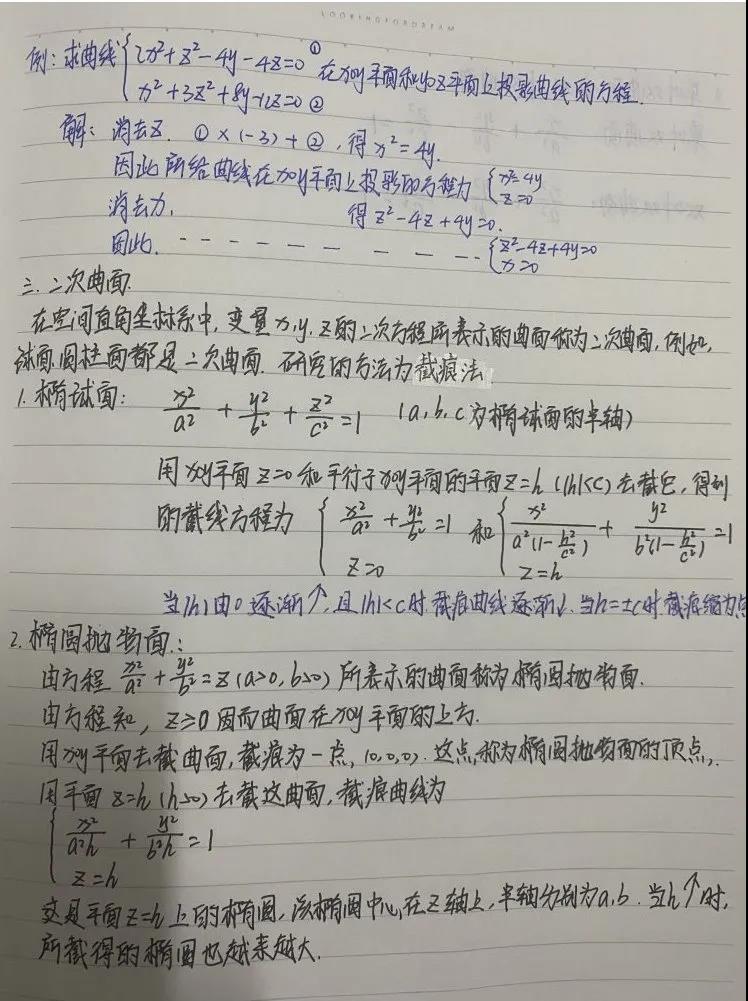 LOOKINGFORDREAM
例: 求曲线 { 2x²+z²-4y-4z=0 ①
x²+3z²+8y-12z=0 ② 在xoy平面和yoz平面上投影曲线的方程.
解: 消去z. ①×(-3)+②, 得x²=4y.
因此所给曲线在xoy平面上投影的方程为 { x²=4y
z=0
消去x, 得z²-4z+4y=0.
因此. - - - - - - - - - - { z²-4z+4y=0
x=0
三. 二次曲面.
在空间直角坐标系中, 变量x,y,z的二次方程所表示的曲面称为二次曲面, 例如,
球面.圆柱面都是二次曲面. 研究的方法为截痕法
1. 椭球面: x²/a² + y²/b² + z²/c² = 1 (a,b,c为椭球面的半轴)
用xoy平面z=0和平行于xoy平面的平面z=h (|h|<c)去截它, 得到
的截线方程为 { x²/a² + y²/b² = 1
z=0 和 { x²/(a²(1-h²/c²)) + y²/(b²(1-h²/c²)) = 1
z=h
当|h|由0逐渐↑, 且|h|<c时. 截痕曲线逐渐↓. 当h=±c时. 截痕缩为点
2. 椭圆抛物面.:
由方程 x²/a² + y²/b² = z (a>0, b>0) 所表示的曲面称为椭圆抛物面.
由方程知, z≥0因而曲面在xoy平面的上方.
用xoy平面去截曲面, 截痕为一点, (0,0,0). 这点,称为椭圆抛物面的顶点,.
用平面 z=h (h>0) 去截这曲面, 截痕曲线为
{ x²/a²h + y²/b²h = 1
z=h
这是平面z=h上的椭圆, 该椭圆中心,在z轴上, 半轴分别为a,b. 当h↑时,
所截得的椭圆也越来越大.